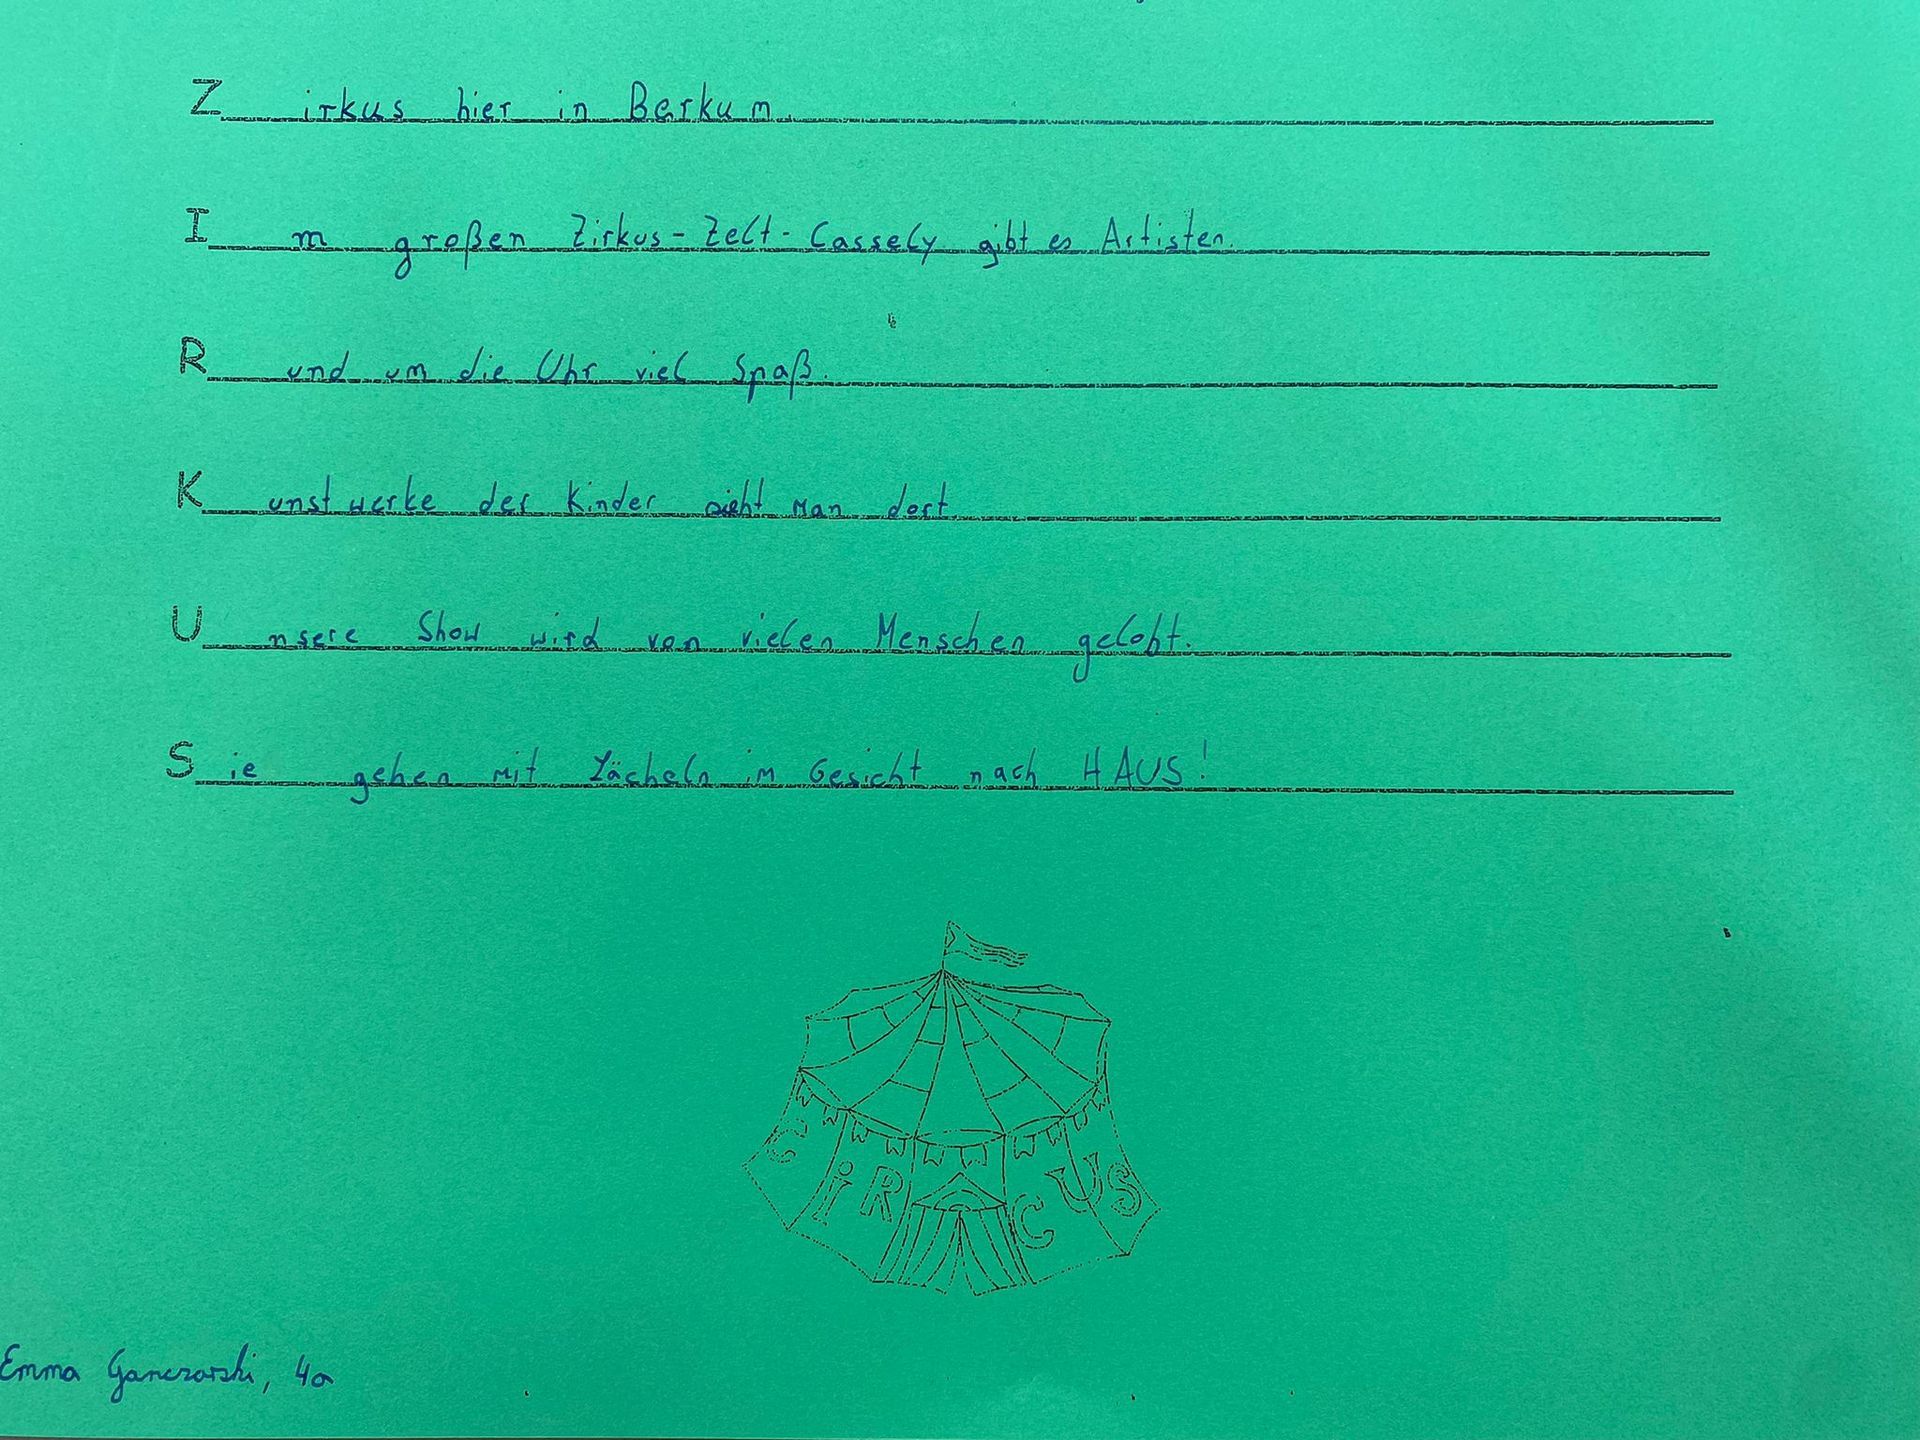 Zirkus hier in Berkum.
Im großen Zirkus-Zelt-Cassely gibt es Artisten.
Rund um die Uhr viel Spaß.
Kunstwerke der Kinder sieht man dort
Unsere Show wird von vielen Menschen gelobt.
Sie gehen mit Lächeln im Gesicht nach HAUS!
CiRCUS
Emma Ganczarski, 4a